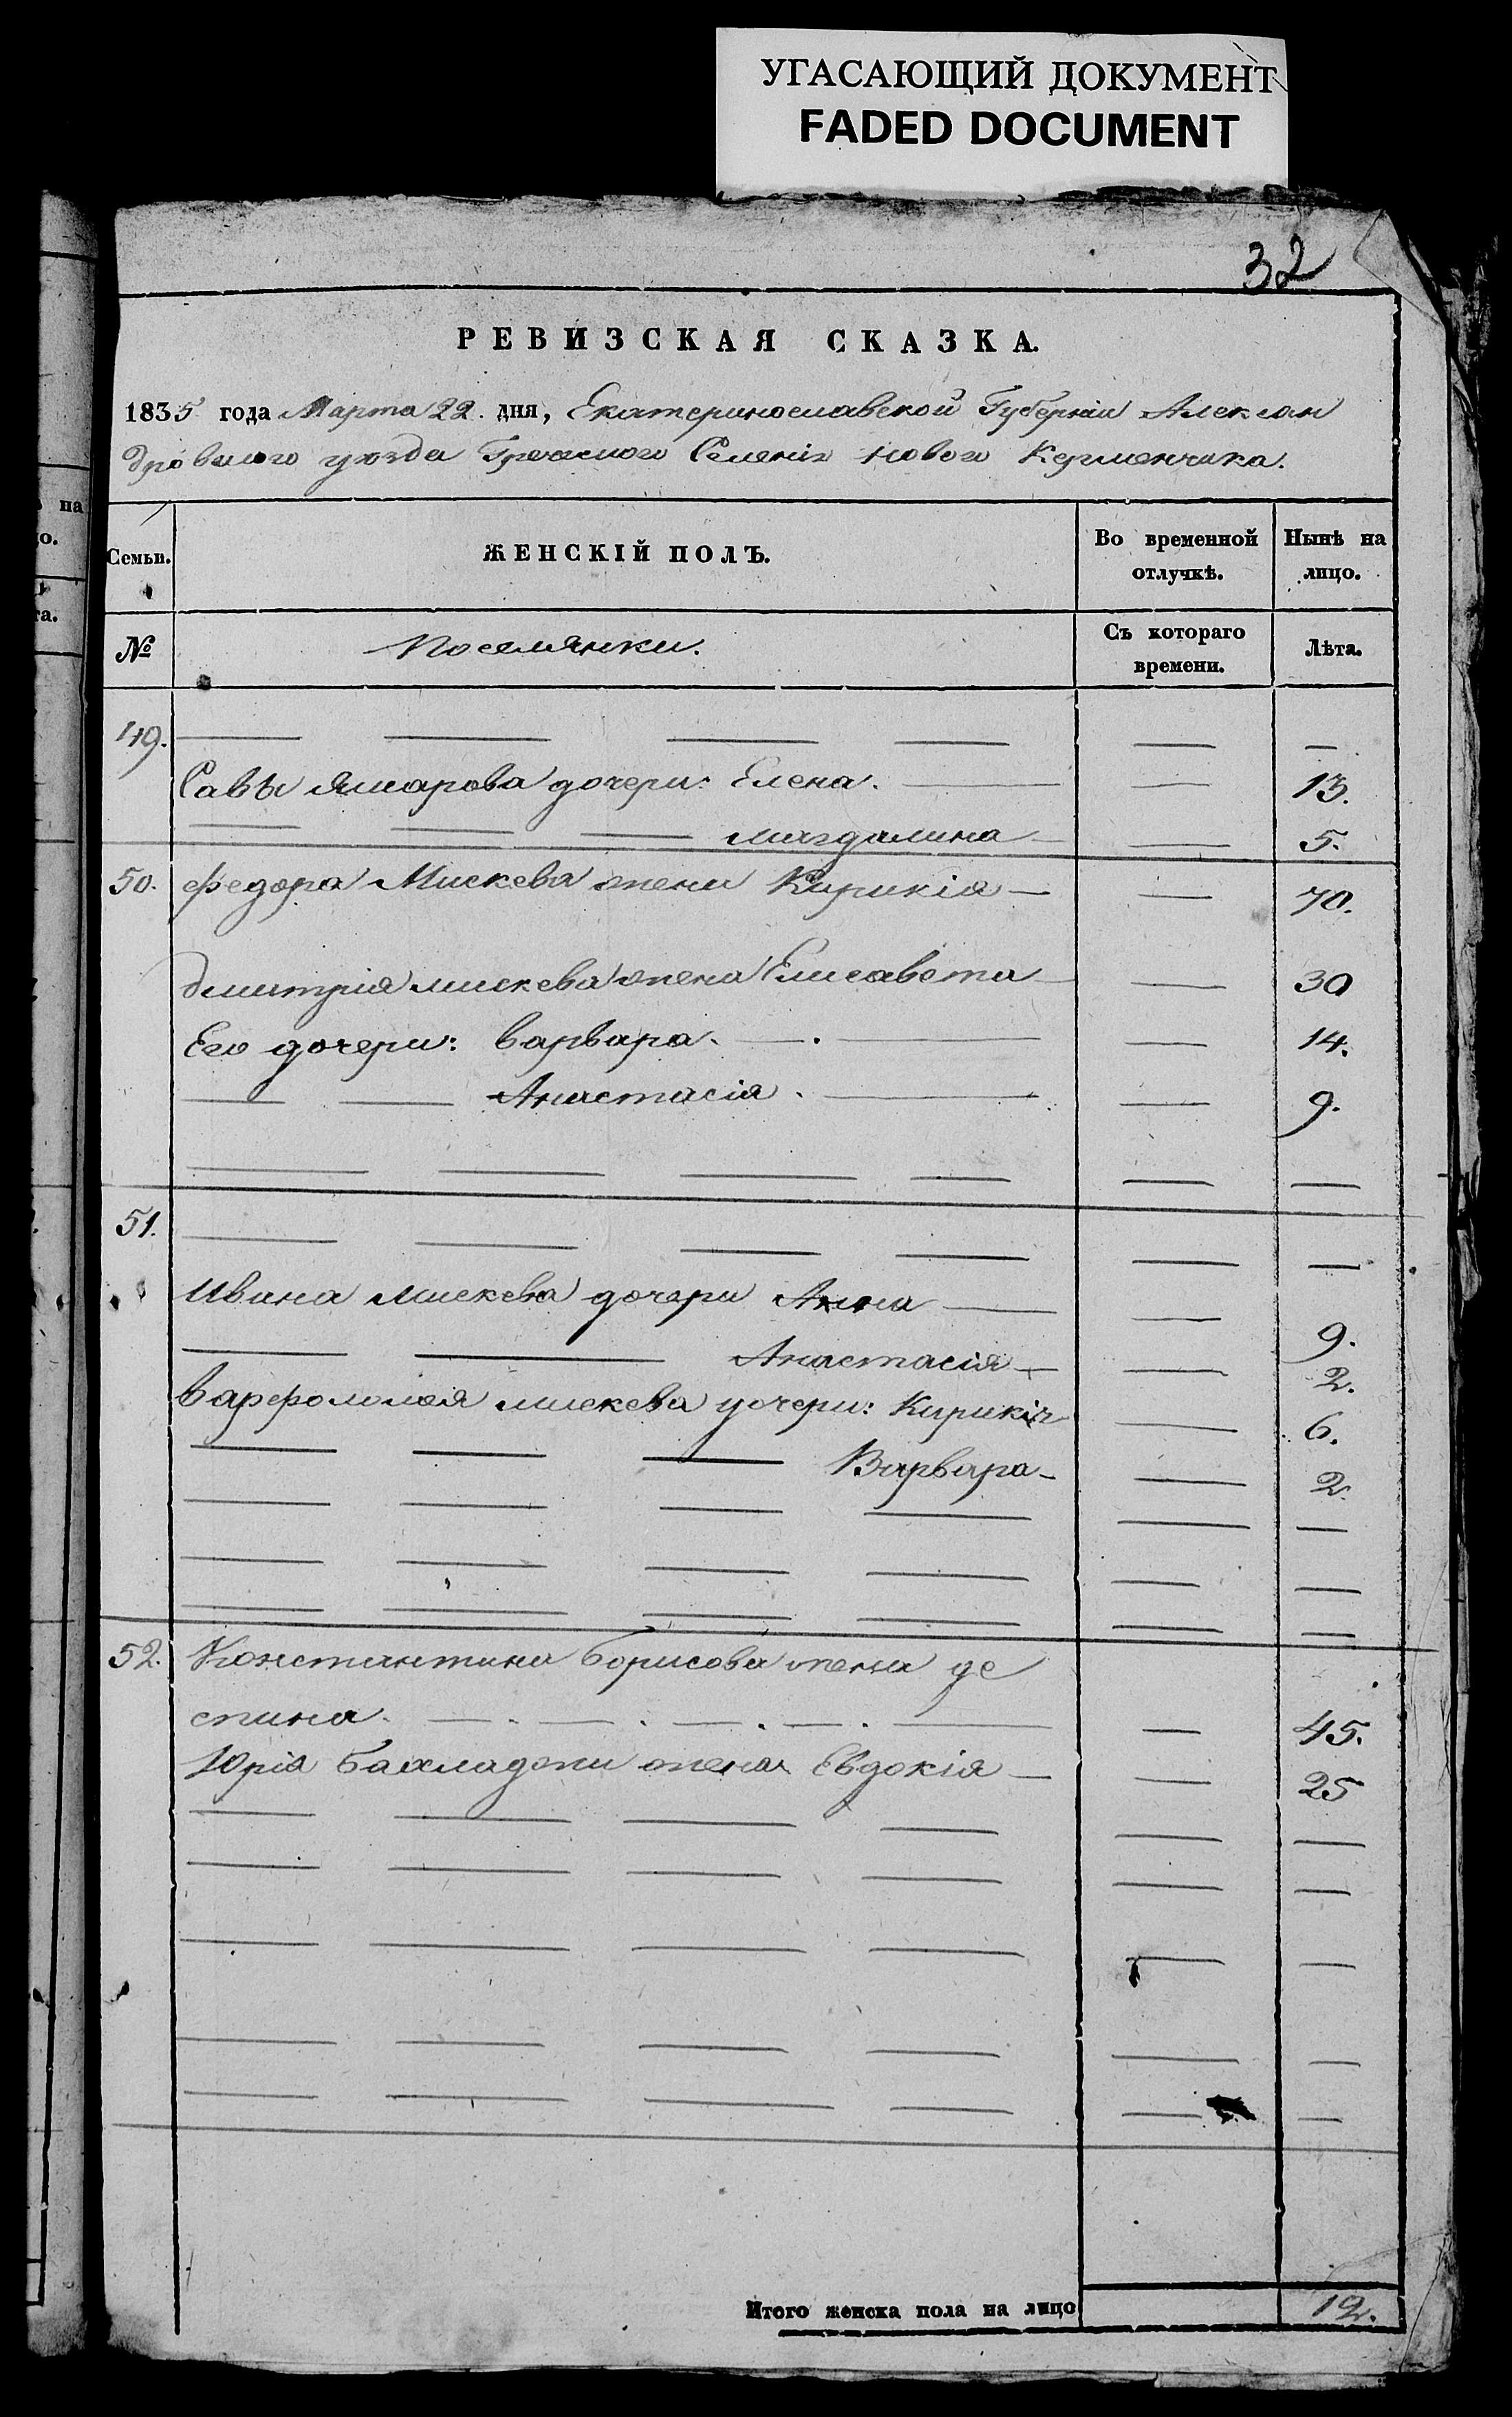 УГАСАЮЩИЙ ДОКУМЕНТ
FADED DOCUMENT
32
РЕВИЗСКАЯ СКАЗКА.
1835 года Марта 22. дня, Екатеринославской Губерніи Алексан
дровскаго уезда Греческого Селенія Нового Керменчика.
Семьи.
ЖЕНСКІЙ ПОЛЪ.
Во временной отлучкѣ.
Нынѣ на лицо.
№
Поселянки.
Съ котораго времени.
Лѣта.
49.
Савы дочери: Елена. 13.
Магдалина 5.
50. Федора Мискева жена Кирикія 70.
Дмитрія Мискева жена Елисавета 30
Его дочери: Варвара. 14.
Анастасія. 9.
51.
Ивана Мискева дочери Анна 9.
Анастасія 2.
Варфоломея Мискева дочери: Кирикія 6.
Варвара 2.
52. Константина Борисова жена де
спина. 45.
Юрія жена Евдокія 25
Итого женска пола на лицо 12.
на
о.
та.